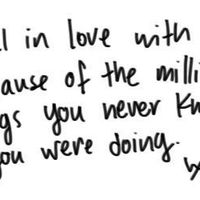 ll in love with
ause of the milli
gs you never kn
you were doing.